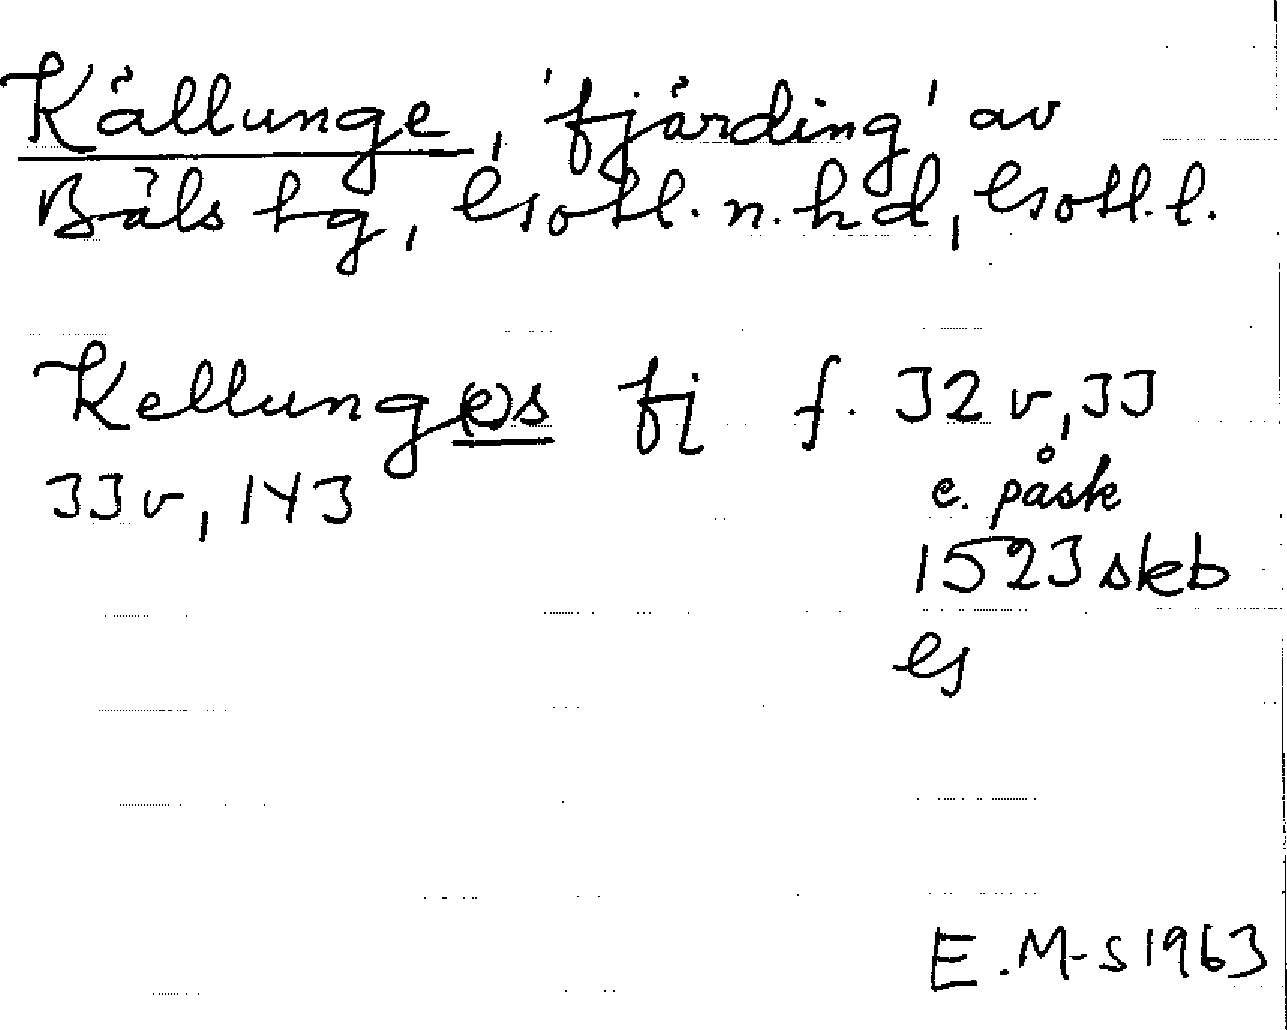 Källunge, 'fjärding' av
Bäls tg, Gotl. n. hd, Gotl. l.
Kellung(e)s fj f. 32 v, 33
33v, 143
e. påsk
1523 skb
G
E. M-S 1963